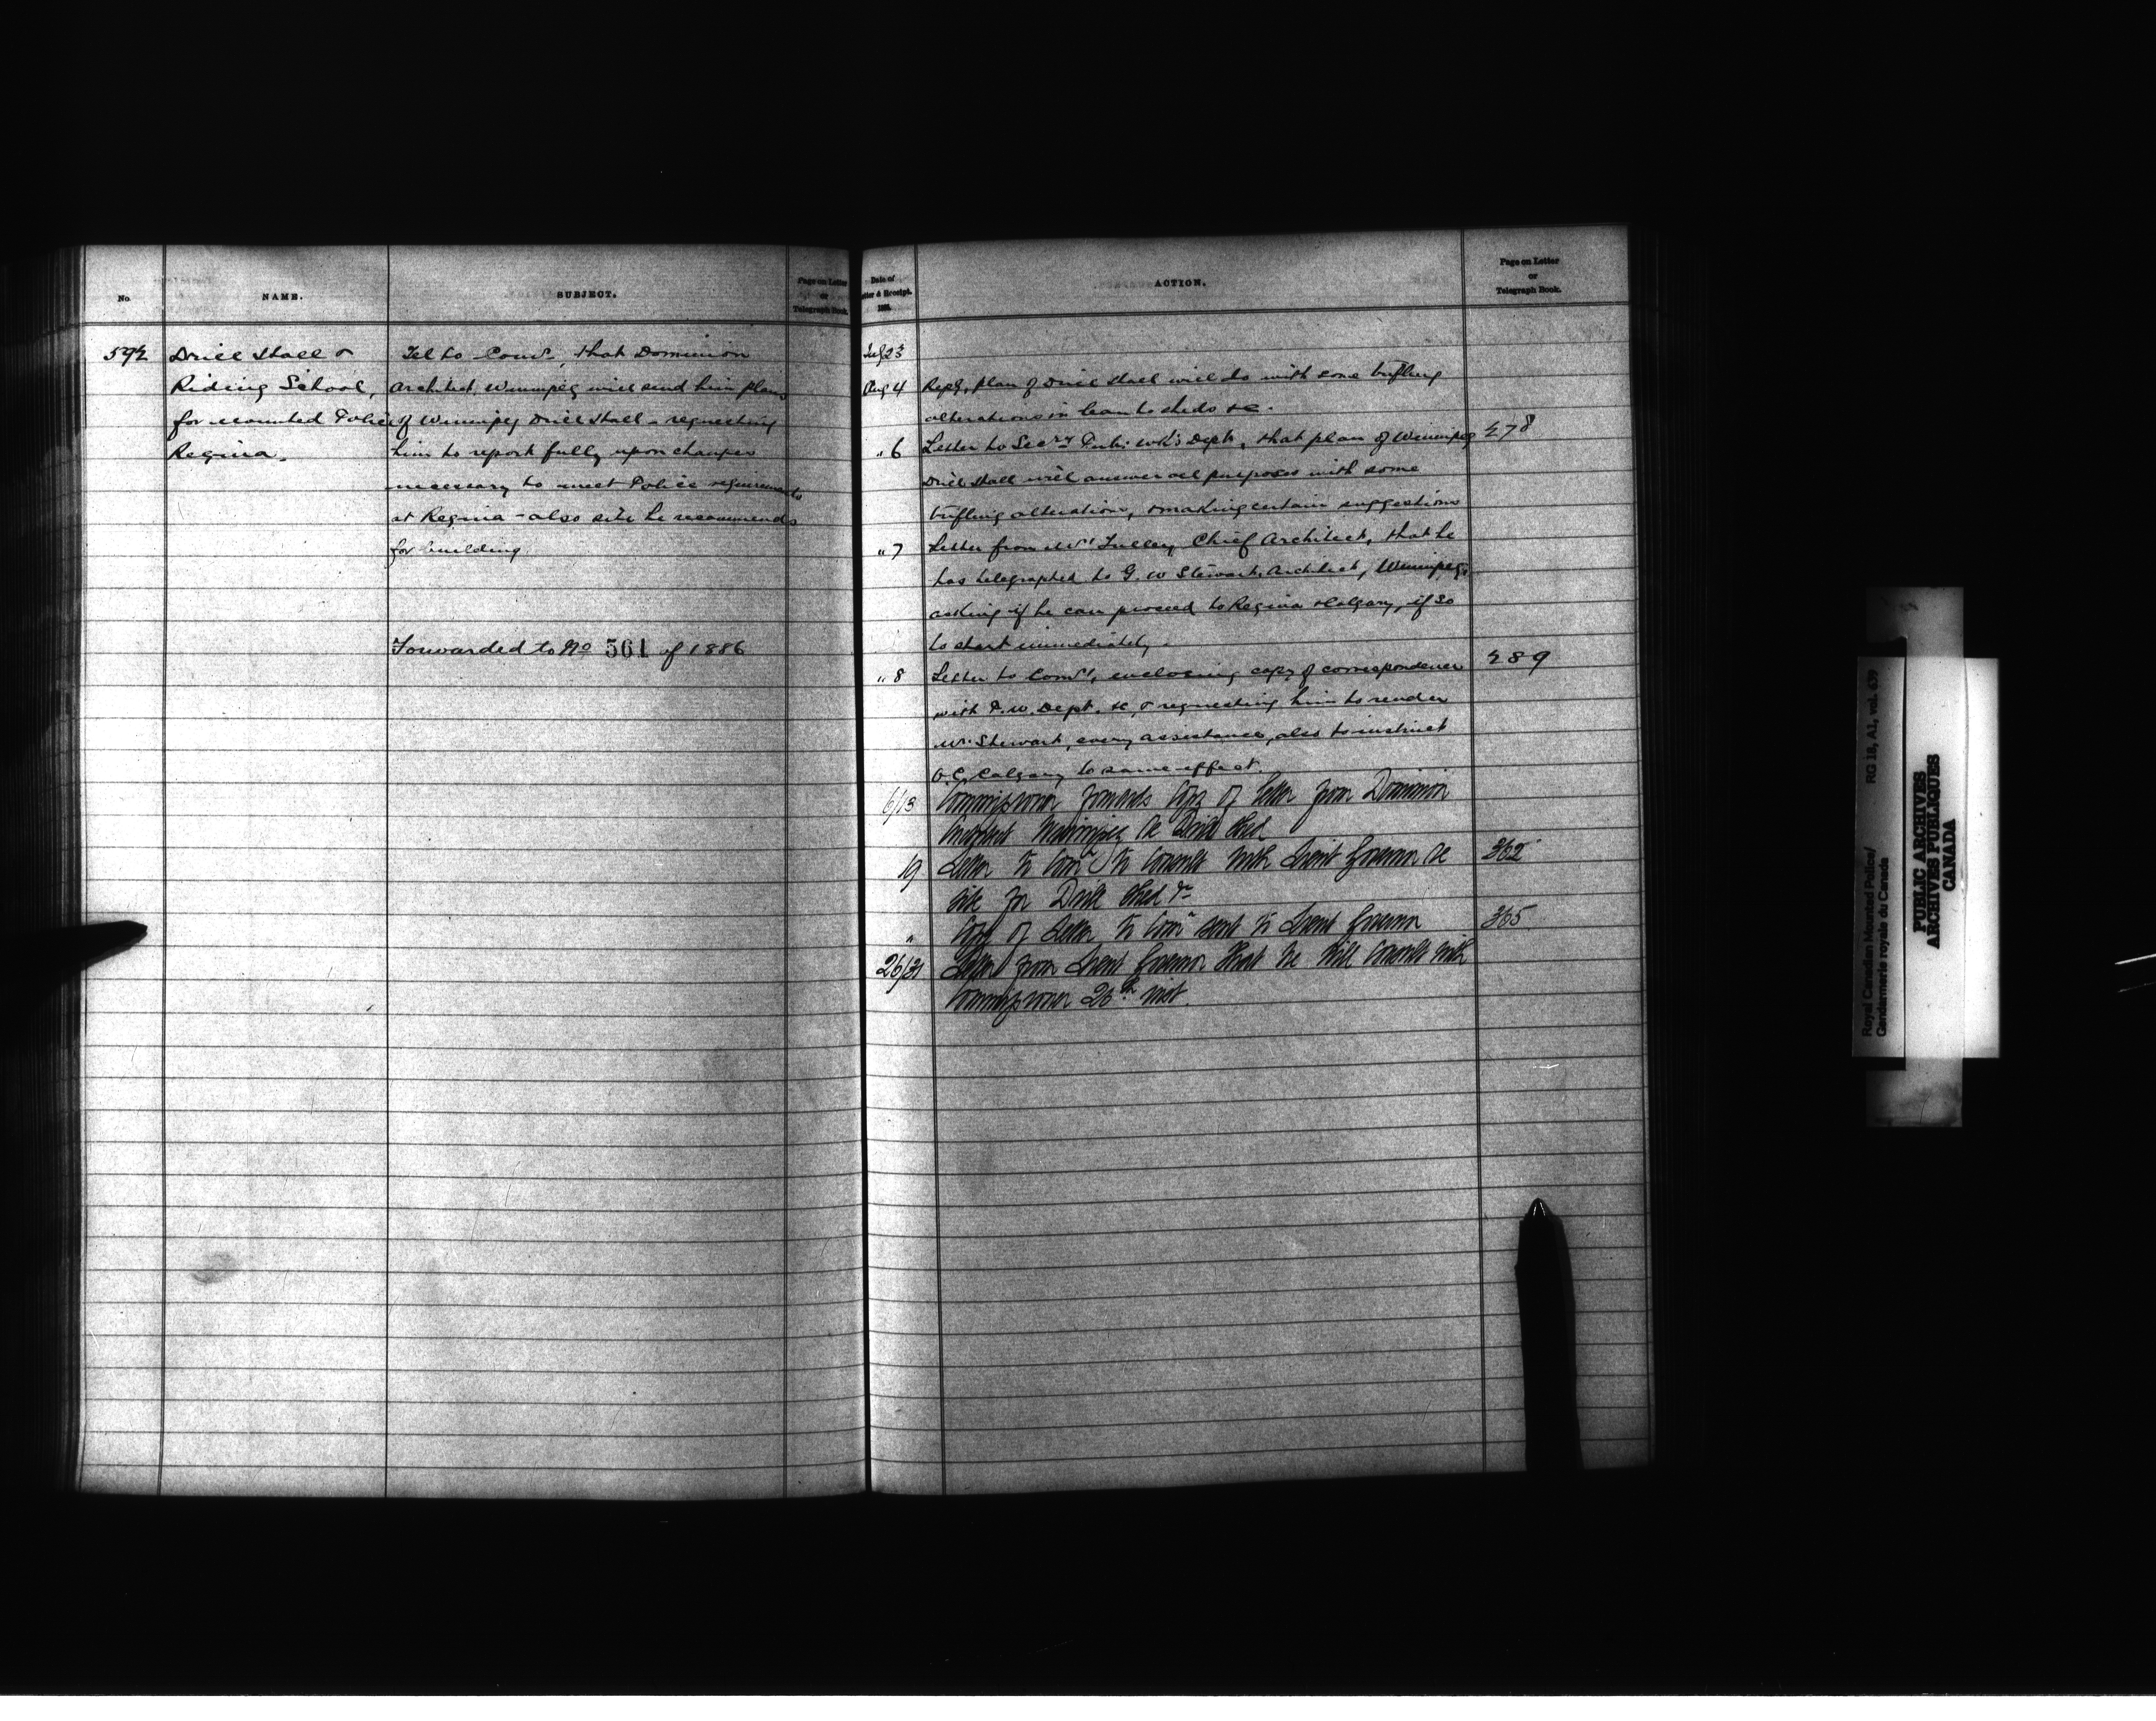 No.
NAME.
SUBJECT.
Page on Letter
or
Telegraph Book.
592
Drill Hall &
Riding School,
for Mounted Police
Regina.
Tel to Comr. that Dominion
Architect, Winnipeg will send him plans
of Winnipeg Drill Hall - requesting
him to report fully upon changes
necessary to meet Police requirements
at Regina - also site he recommends
for building
Forwarded to No 561 of 1886
Date of
Letter & Receipt.
188
ACTION.
Page on Letter
or
Telegraph Book.
July 23
Aug 4 Rept, plan of Drill Hall will do with some trifling
alterations in lean to sheds &c.
" 6 Letter to Secry Pub: Wk's Dept, that plan of Winnipeg 278
Drill Hall will answer all purposes with some
trifling alterations, & making certain suggestions
" 7 Letter from Mr Fuller, Chief Architect, that he
has telegraphed to G. W Stewart, Architect, Winnipeg,
asking if he can proceed to Regina & Calgary, if so
to start immediately.
" 8 Letter to Comr, enclosing copy of correspondence 289
with P.W. Dept. &c, & requesting him to render
Mr. Stewart, every assistance, also to instruct
O.C. Calgary to same effect.
6/13 Commissioner forwards Copy of letter from Dominion
Architect Winnipeg re Drill shed
19 Letter to Comr to consult with Lieut Governor re 362
site for Drill shed &c
" Copy of letter to Comr sent to Lieut Governor 365
26/31 Letter from Lieut Governor that he will consult with
Commissioner 26th inst.
Royal Canadian Mounted Police/
Gendarmerie royale du Canada
RG 18, A1, vol. 639
PUBLIC ARCHIVES
ARCHIVES PUBLIQUES
CANADA